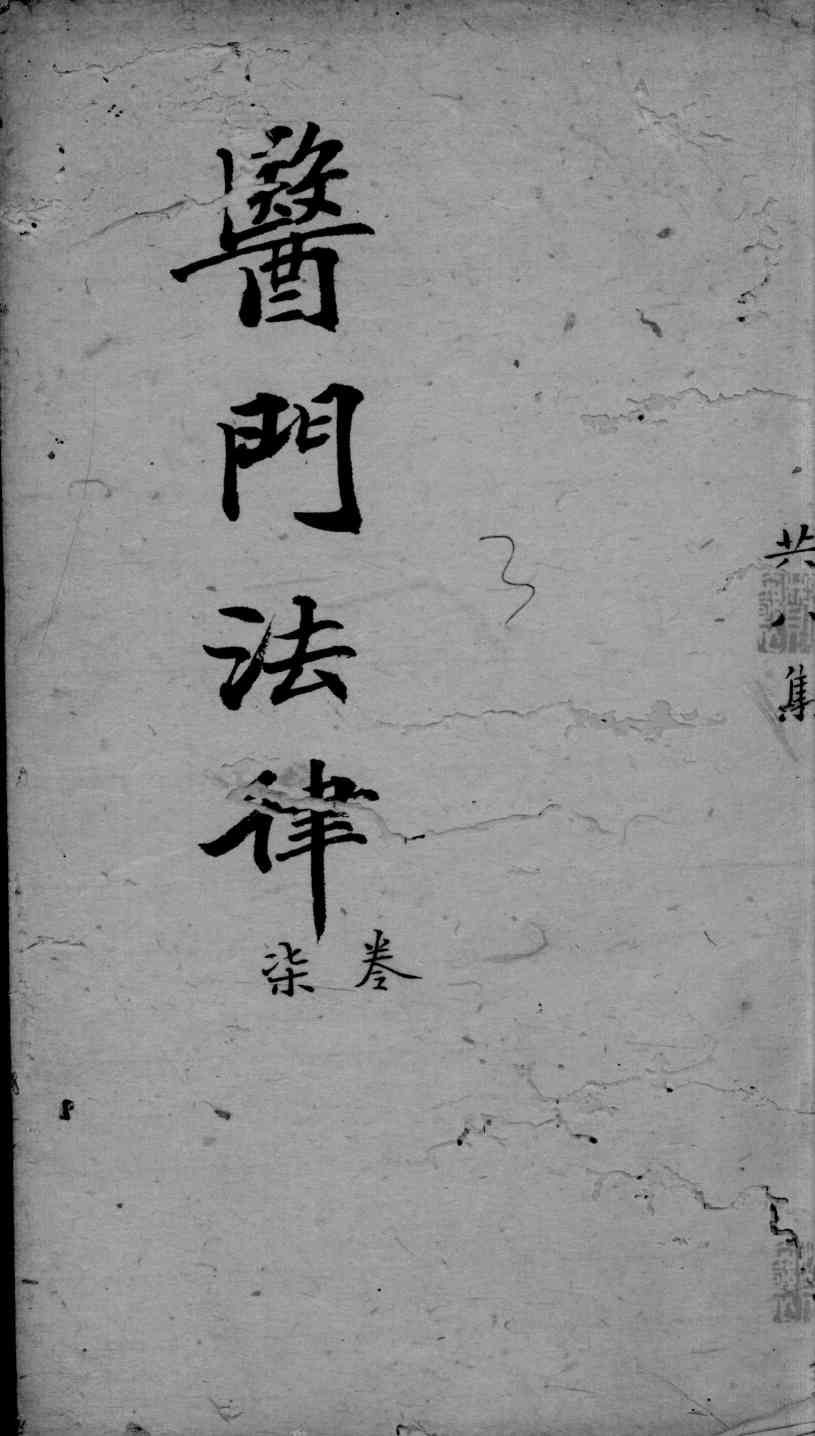 共八集
醫門法律
卷柒